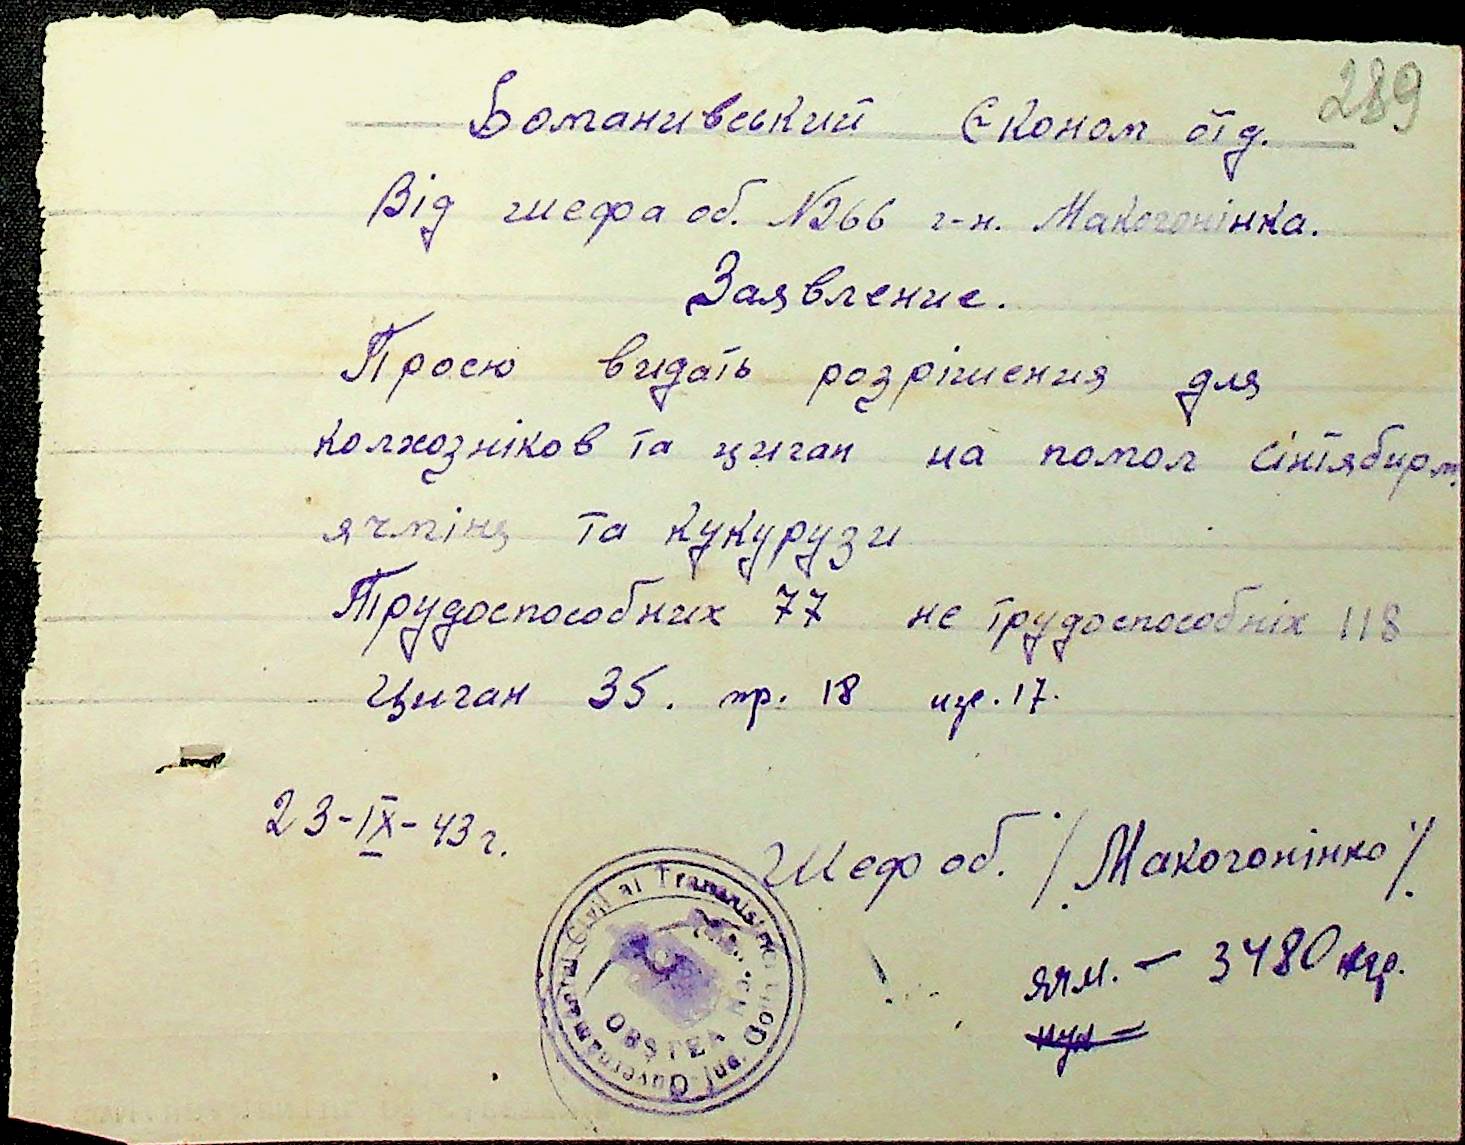 289
Доманивський Економ отд.
Від шефа об. №266 г-н. Макогонінка.
Заявление.
Просю видать розрішения для
колхозніков та циган на помол сінтябирм
ячміня та кукурузи
Трудоспособних 77 не трудоспособніх 118
Циган 35. тр. 18 иже. 17.
23-IX-43 г.
Шеф об. /Макогонінко/
ячм. – 3480 кгр.
кук –
Guvernamantul Civil al Transnistriei
OBȘTEA No.